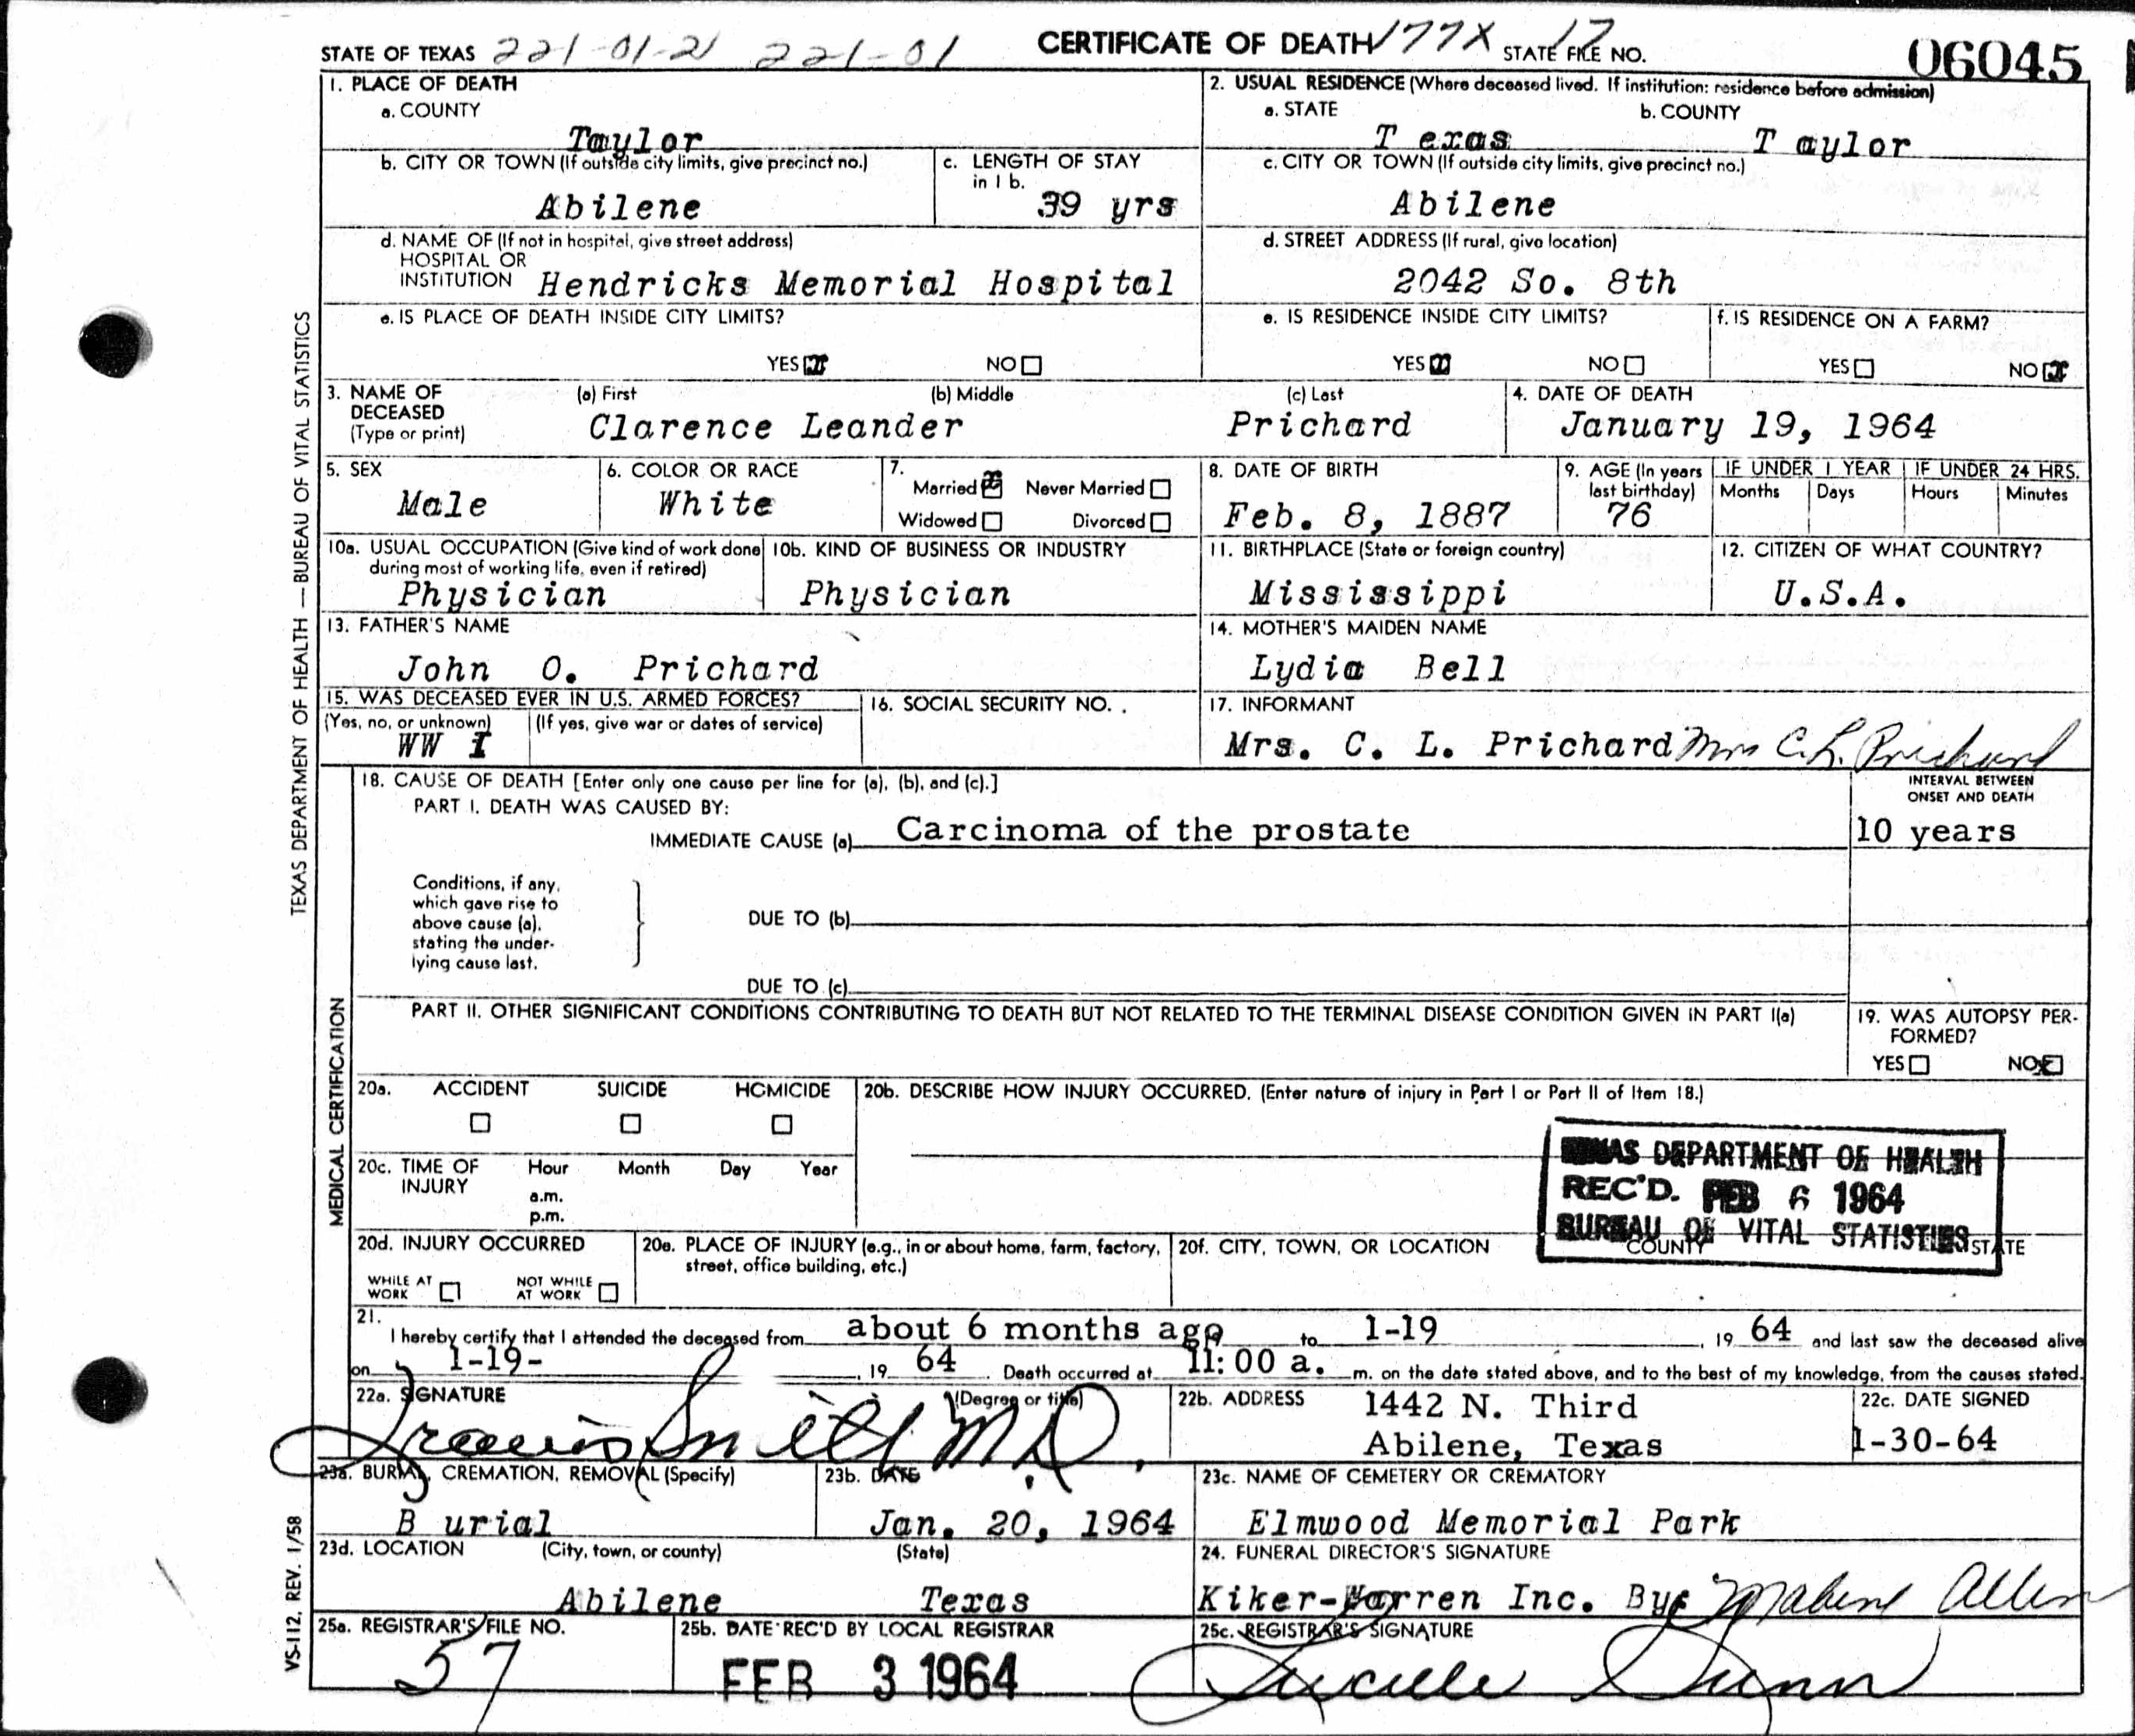 STATE OF TEXAS 221-01-21 221-01 CERTIFICATE OF DEATH 177X STATE FILE NO. 17 06045
1. PLACE OF DEATH
a. COUNTY
Taylor
2. USUAL RESIDENCE (Where deceased lived. If institution: residence before admission)
a. STATE b. COUNTY
T exas T aylor
b. CITY OR TOWN (If outside city limits, give precinct no.)
Abilene
c. LENGTH OF STAY
in 1 b.
39 yrs
c. CITY OR TOWN (If outside city limits, give precinct no.)
Abilene
d. NAME OF (If not in hospital, give street address)
HOSPITAL OR
INSTITUTION Hendricks Memorial Hospital
d. STREET ADDRESS (If rural, give location)
2042 So. 8th
e. IS PLACE OF DEATH INSIDE CITY LIMITS?
YES NO
e. IS RESIDENCE INSIDE CITY LIMITS?
YES NO
f. IS RESIDENCE ON A FARM?
YES NO
3. NAME OF
DECEASED
(Type or print)
(a) First (b) Middle (c) Last
Clarence Leander Prichard
4. DATE OF DEATH
January 19, 1964
5. SEX
Male
6. COLOR OR RACE
White
7.
Married Never Married
Widowed Divorced
8. DATE OF BIRTH
Feb. 8, 1887
9. AGE (In years
last birthday)
76
IF UNDER 1 YEAR IF UNDER 24 HRS.
Months Days Hours Minutes
10a. USUAL OCCUPATION (Give kind of work done
during most of working life, even if retired)
Physician
10b. KIND OF BUSINESS OR INDUSTRY
Physician
11. BIRTHPLACE (State or foreign country)
Mississippi
12. CITIZEN OF WHAT COUNTRY?
U.S.A.
13. FATHER'S NAME
John O. Prichard
14. MOTHER'S MAIDEN NAME
Lydia Bell
15. WAS DECEASED EVER IN U.S. ARMED FORCES?
(Yes, no, or unknown) (If yes, give war or dates of service)
WW I
16. SOCIAL SECURITY NO.
17. INFORMANT
Mrs. C. L. Prichard Mrs C. L. Prichard
18. CAUSE OF DEATH [Enter only one cause per line for (a), (b), and (c).]
PART I. DEATH WAS CAUSED BY:
IMMEDIATE CAUSE (a) Carcinoma of the prostate
INTERVAL BETWEEN
ONSET AND DEATH
10 years
Conditions, if any,
which gave rise to
above cause (a),
stating the under-
lying cause last.
DUE TO (b)
DUE TO (c)
PART II. OTHER SIGNIFICANT CONDITIONS CONTRIBUTING TO DEATH BUT NOT RELATED TO THE TERMINAL DISEASE CONDITION GIVEN IN PART I(a)
19. WAS AUTOPSY PER-
FORMED?
YES NO
20a. ACCIDENT SUICIDE HOMICIDE
20b. DESCRIBE HOW INJURY OCCURRED. (Enter nature of injury in Part I or Part II of Item 18.)
20c. TIME OF
INJURY
Hour Month Day Year
a.m.
p.m.
TEXAS DEPARTMENT OF HEALTH
REC'D. FEB 6 1964
BUREAU OF VITAL STATISTICS
20d. INJURY OCCURRED
WHILE AT
WORK
NOT WHILE
AT WORK
20e. PLACE OF INJURY (e.g., in or about home, farm, factory,
street, office building, etc.)
20f. CITY, TOWN, OR LOCATION COUNTY STATE
21.
I hereby certify that I attended the deceased from about 6 months ago to 1-19, 19 64 and last saw the deceased alive
on 1-19-, 19 64. Death occurred at 11:00 a. m. on the date stated above, and to the best of my knowledge, from the causes stated.
22a. SIGNATURE (Degree or title)
Travis Smith M.D.
22b. ADDRESS 1442 N. Third
Abilene, Texas
22c. DATE SIGNED
1-30-64
23a. BURIAL, CREMATION, REMOVAL (Specify)
B urial
23b. DATE
Jan. 20, 1964
23c. NAME OF CEMETERY OR CREMATORY
Elmwood Memorial Park
23d. LOCATION (City, town, or county) (State)
Abilene Texas
24. FUNERAL DIRECTOR'S SIGNATURE
Kiker-Warren Inc. By: Allen
25a. REGISTRAR'S FILE NO.
57
25b. DATE REC'D BY LOCAL REGISTRAR
FEB 3 1964
25c. REGISTRAR'S SIGNATURE
Lucille Dunn
TEXAS DEPARTMENT OF HEALTH — BUREAU OF VITAL STATISTICS
MEDICAL CERTIFICATION
VS-112, REV. 1/58